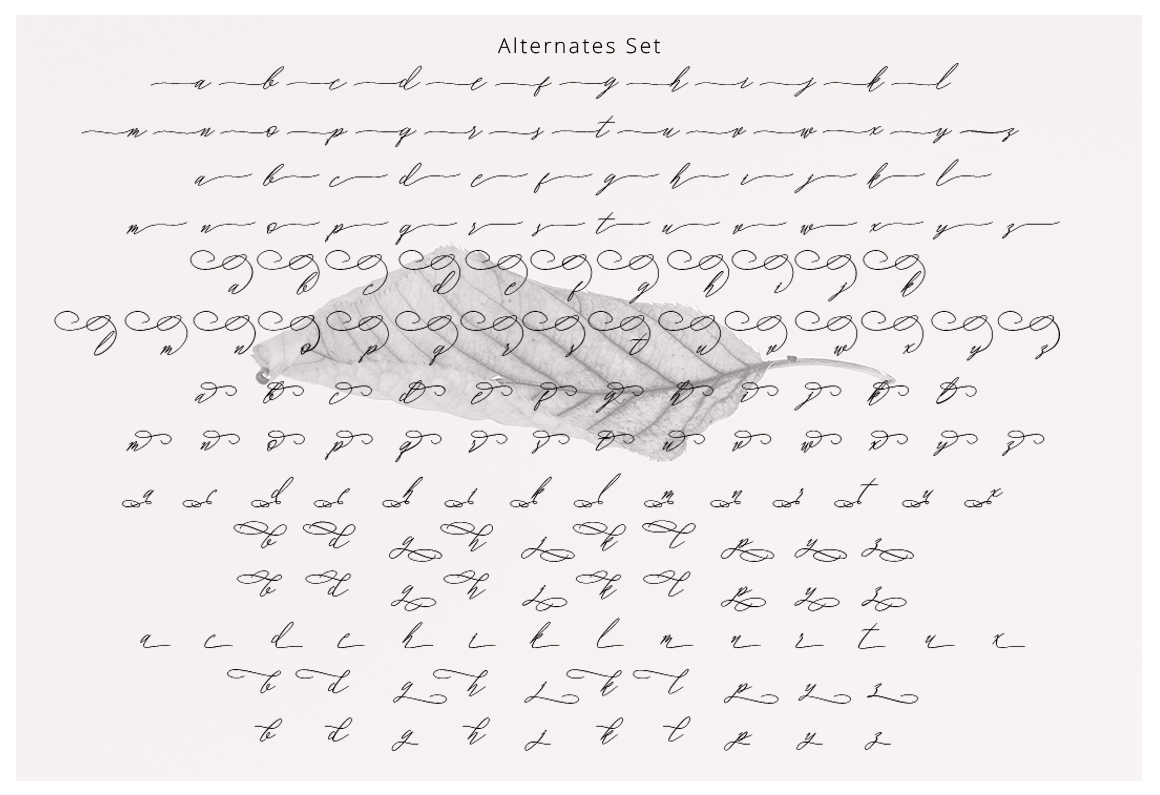 Alternates Set
a b c d e f g h i j k l
m n o p q r s t u v w x y z
a b c d e f g h i j k l
m n o p q r s t u v w x y z
a b c d e f g h i j k
l m n o p q r s t u v w x y z
a b c d e f g h i j k l
m n o p q r s t u v w x y z
a c d e h i k l m n r t u x
b d g h j k l p y z
b d g h j k l p y z
a c d e h i k l m n r t u x
b d g h j k l p y z
b d g h j k l p y z